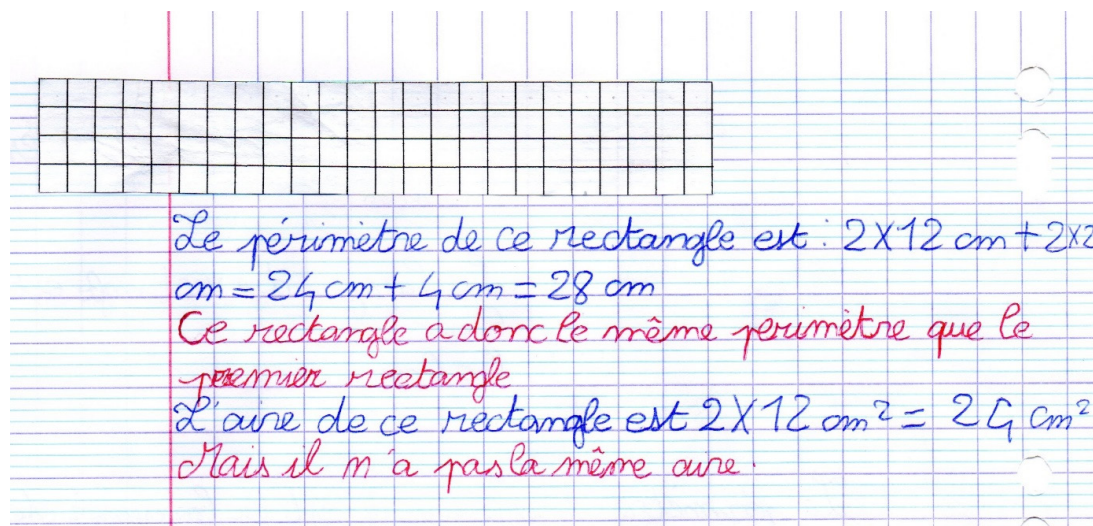 Le périmètre de ce rectangle est : 2X12 cm + 2x2
cm = 24 cm + 4 cm = 28 cm
Ce rectangle a donc le même perimètre que le
premier rectangle
L'aire de ce rectangle est 2X12 cm² = 24 cm²
Mais il n'a pas la même aire.